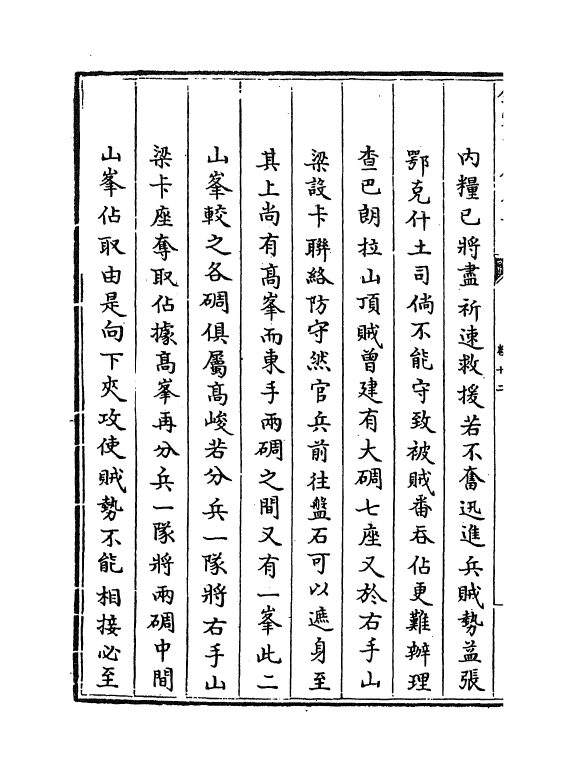 內糧已將盡祈速救援若不奮迅進兵賊勢益張
鄂克什土司倘不能守致被賊番吞佔更難辦理
查巴朗拉山頂賊曾建有大碉七座又於右手山
梁設卡聯絡防守然官兵前往盤石可以遮身至
其上尚有高峯而東手兩碉之間又有一峯此二
山峯較之各碉俱屬高峻若分兵一隊將右手山
梁卡座奪取佔據高峯再分兵一隊將兩碉中間
山峯佔取由是向下夾攻使賊勢不能相接必至
卷十二